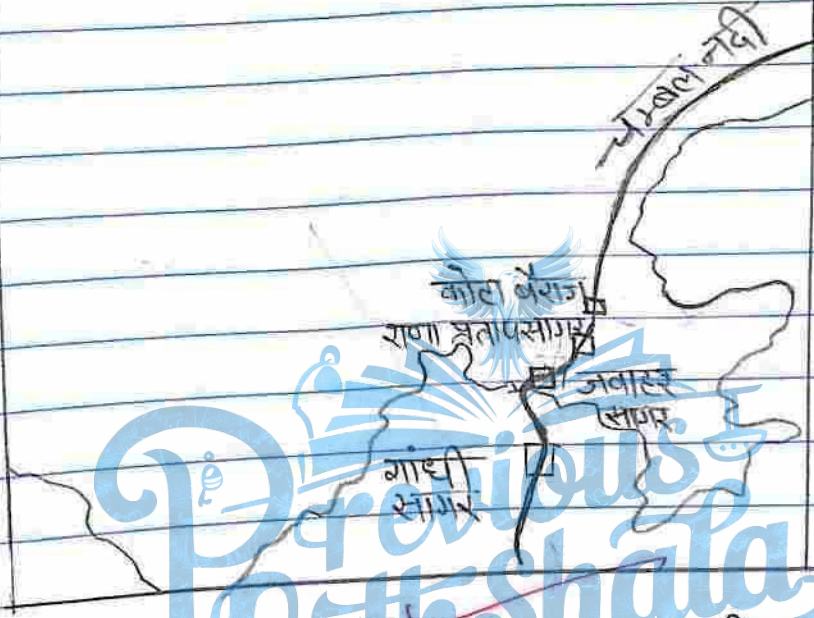 चम्बल नदी
कोटा बैराज
राणा प्रतापसागर
जवाहर
सागर
गांधी
सागर
Previous
PathShala